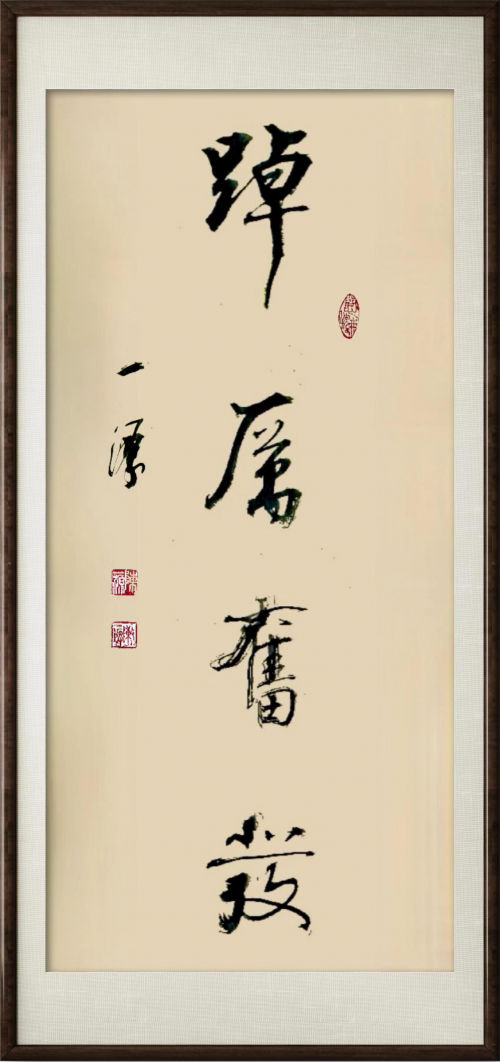 踔厲奮發
一